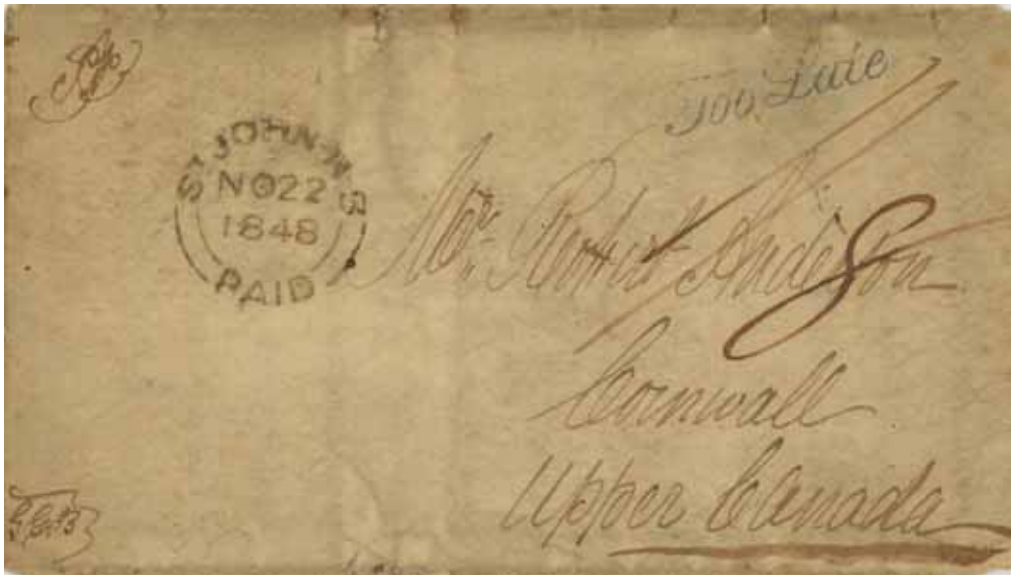 Too Late
ST JOHN·N·B
NO 22
1848
PAID
Mr. Robert Anderson
Cornwall
Upper Canada